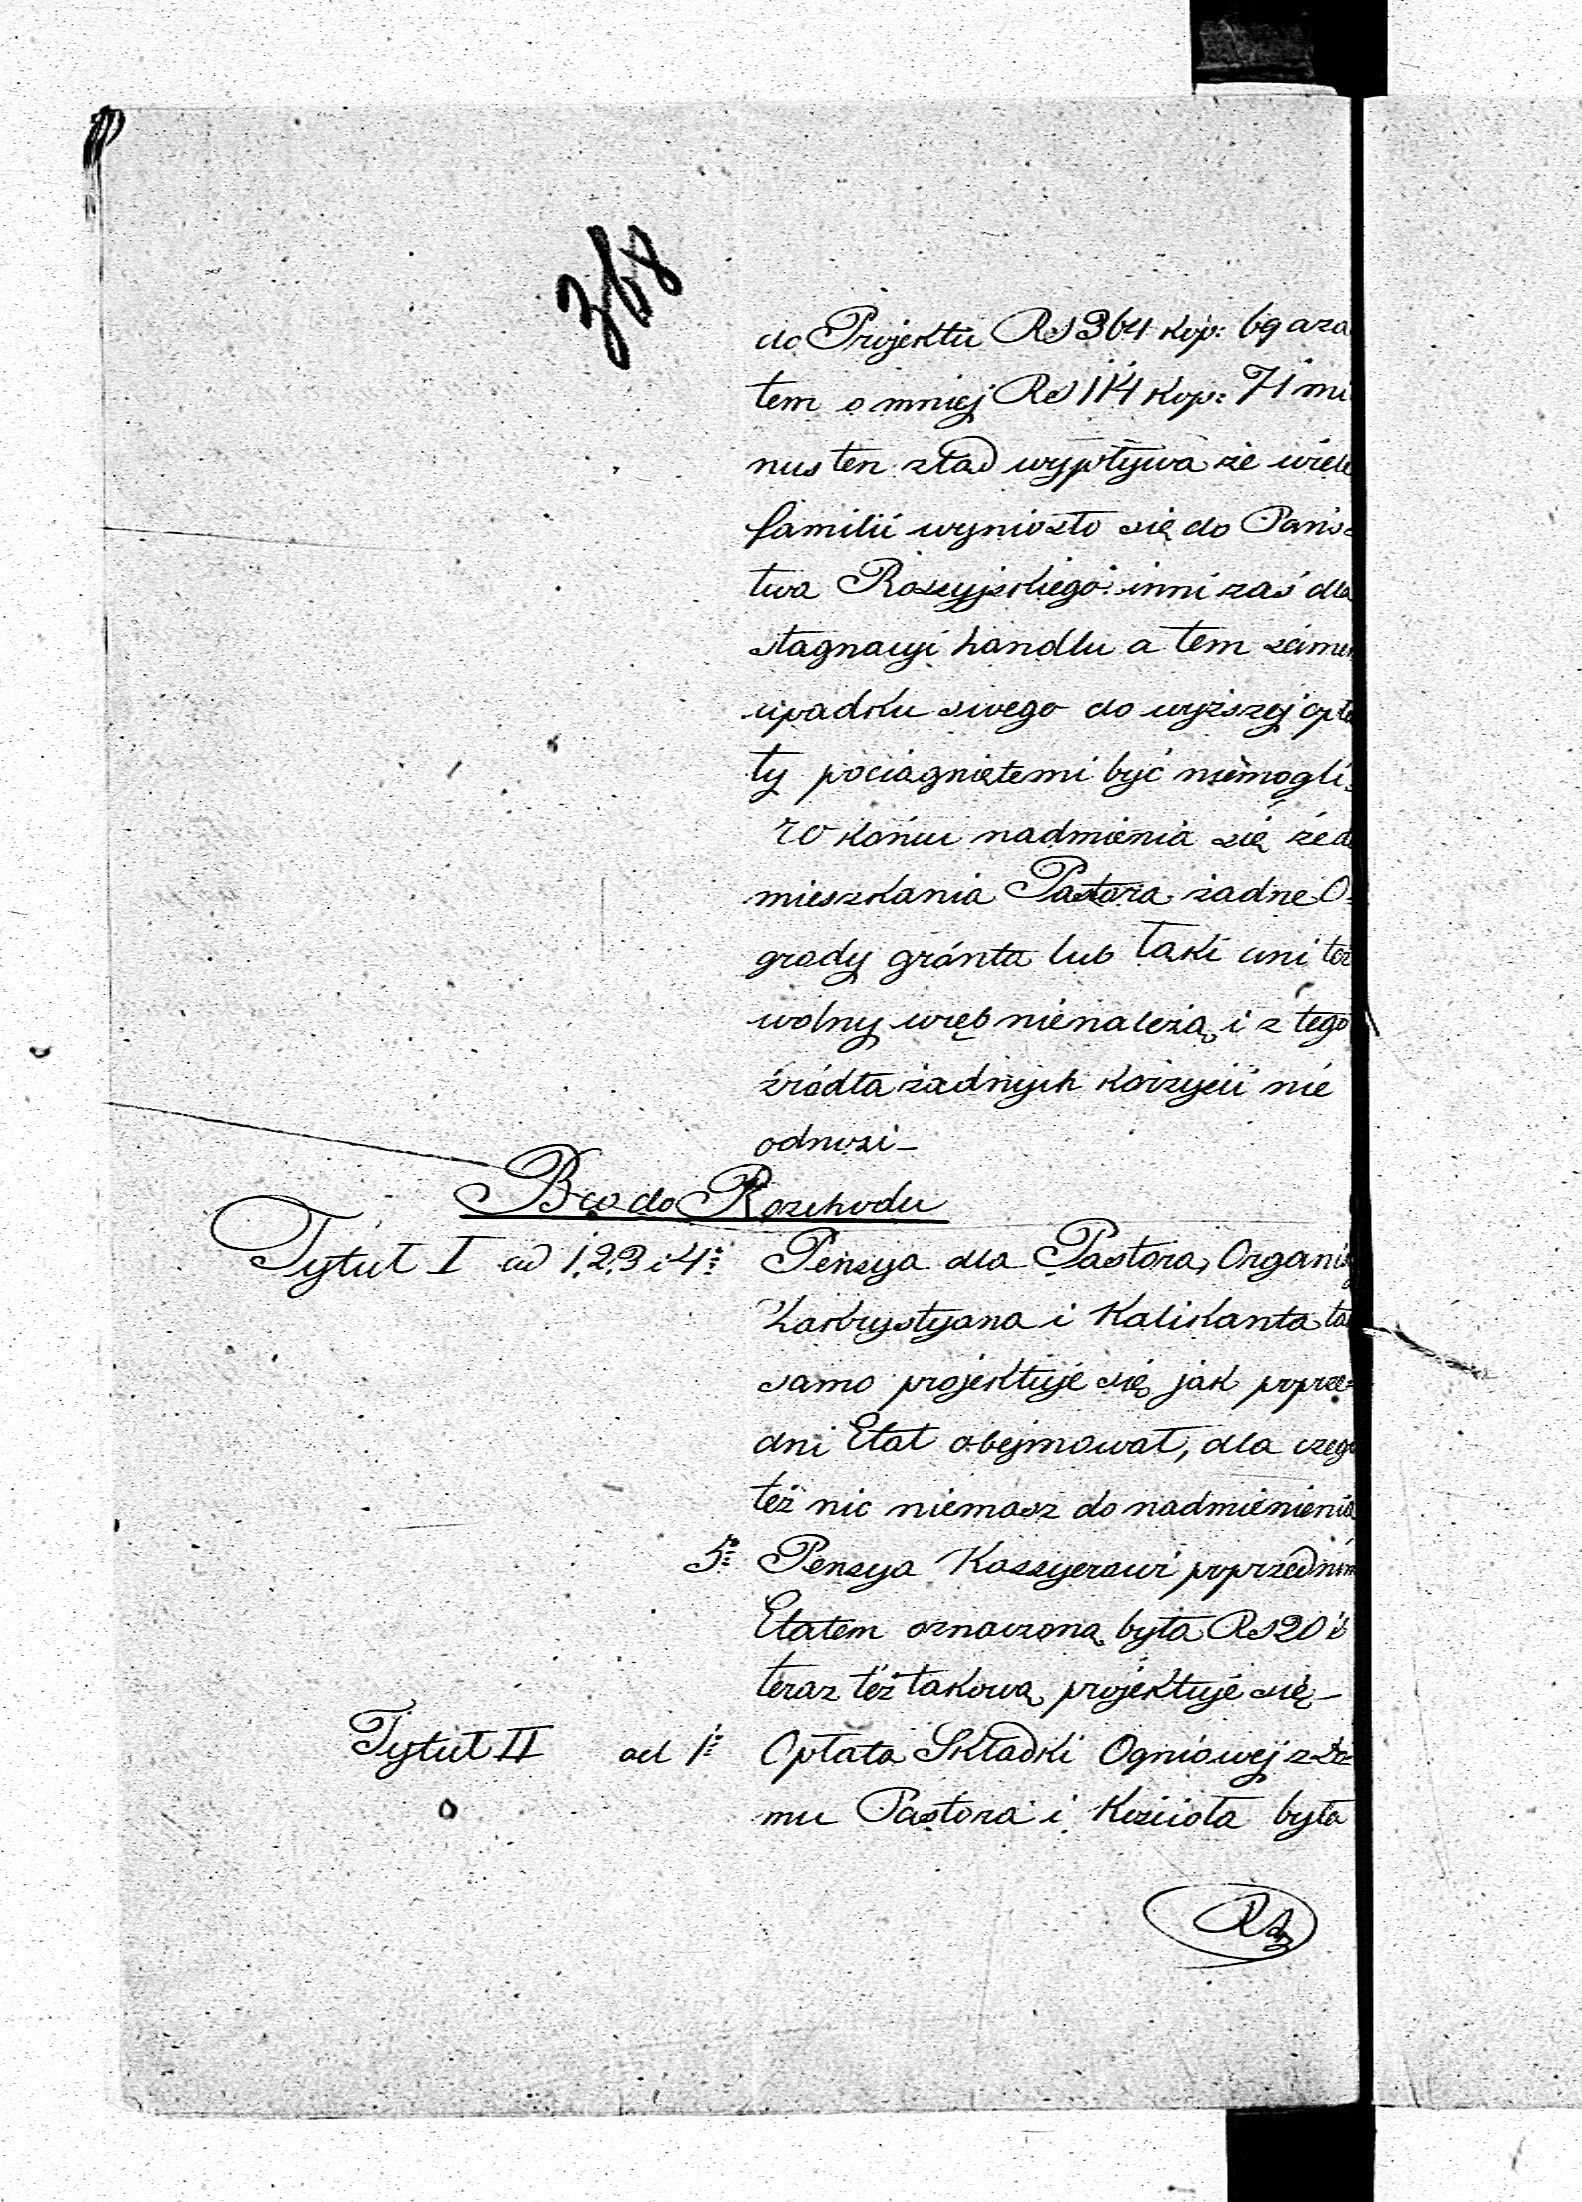 368
do Projektu RS 364 kop: 69 aza
tem o mniej RS 114 kop: 71 mi
nus ten ztąd wypływa że wiele
familii wyniosło się do Pańs-
twa Rossyjskiego inni zaś dla
stagnacyi handlu a tem samem
upadku swego do wyższej opła
ty pociągniętemi być niemogli.
W końcu nadmienia się że do
mieszkania Pastora żadne O-
grody grónta lub Łąki ani też
wolny wręb nienależą i z tego
źródła żadnych korzyści nie
odnosi_
B co do Rozchodu
Tytuł I ad 1, 2, 3 i 4: Pensya dla Pastora, Organis
Zakrystyana i Kalikanta tak
samo projektuje się jak poprze-
dni Etat obejmował, dla czego
też nic niemasz do nadmienienia
5: Pensya Kassyerowi poprzednim
Etatem oznaczoną była RS 20 i
teraz też takową projektuje się_
Tytuł II ad 1: Opłata Składki Ogniowej z Do-
mu Pastora i Kościoła była